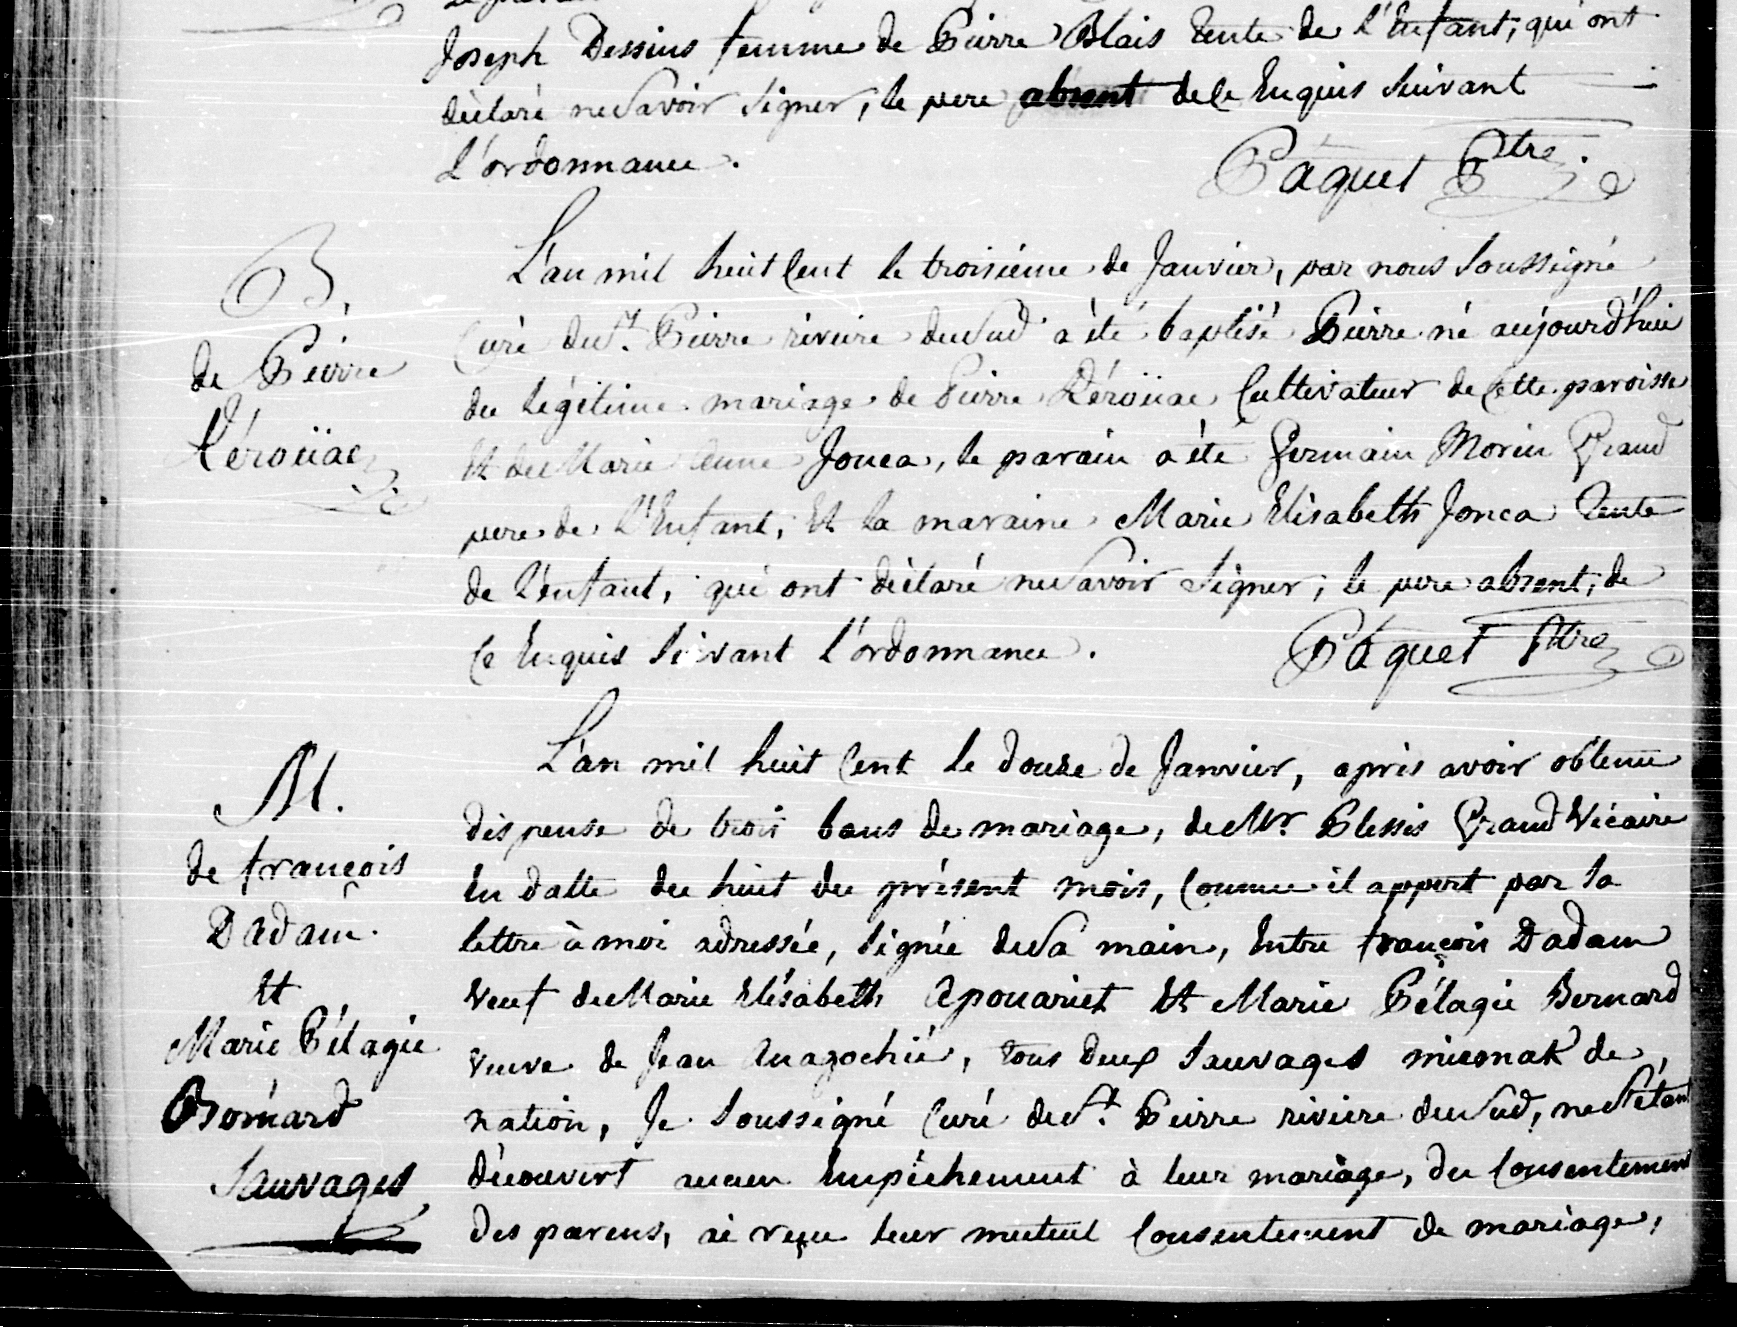 Joseph Dessins femme de Pierre Blais tente de l'Enfant, qui ont
déclaré ne Savoir Signer, le pere absent de Ce Enquis Suivant
L'ordonnance.
Páquet Ptre.
B.
de Pierre
Kéroüac
L'an mil huit Cent le troisiéme de Janvier, par nous Soussigné
Curé de St. Pierre riviere du Sud a été baptisé Pierre né aujourd'hui
du légitime mariage de Pierre Kéroüac Cultivateur de Cette paroisse
Et de Marie Anne Jonca, le parain a été Germain Morin Grand
pere de l'Enfant, Et la maraine Marie Elisabeth Jonca tente
de l'enfant, qui ont déclaré ne Savoir Signer; le pere absent, de
Ce Enquis Suivant l'ordonnance.
Páquet Ptre
M.
de françois
Dadam
Et
Marie Pélagie
Bernard
Sauvages
L'an mil huit Cent le douze de Janvier, après avoir obtenu
dispense de trois bans de mariage, de Mr. Plessis Grand Vicaire
En datte du huit du présent mois, Comme il appert par Sa
lettre à moi adressée, Signée de Sa main, Entre françois Dadam
Veuf de Marie Elisabeth Apouariet Et Marie Pélagie Bernard
veuve de Jean, tous deux Sauvages micmak de
nation, Je Soussigné Curé de St. Pierre riviere du Sud, ne S'étant
découvert aucun Empêchement à leur mariage, du Consentement
des parens, ai reçu leur mutuel Consentement de mariage,